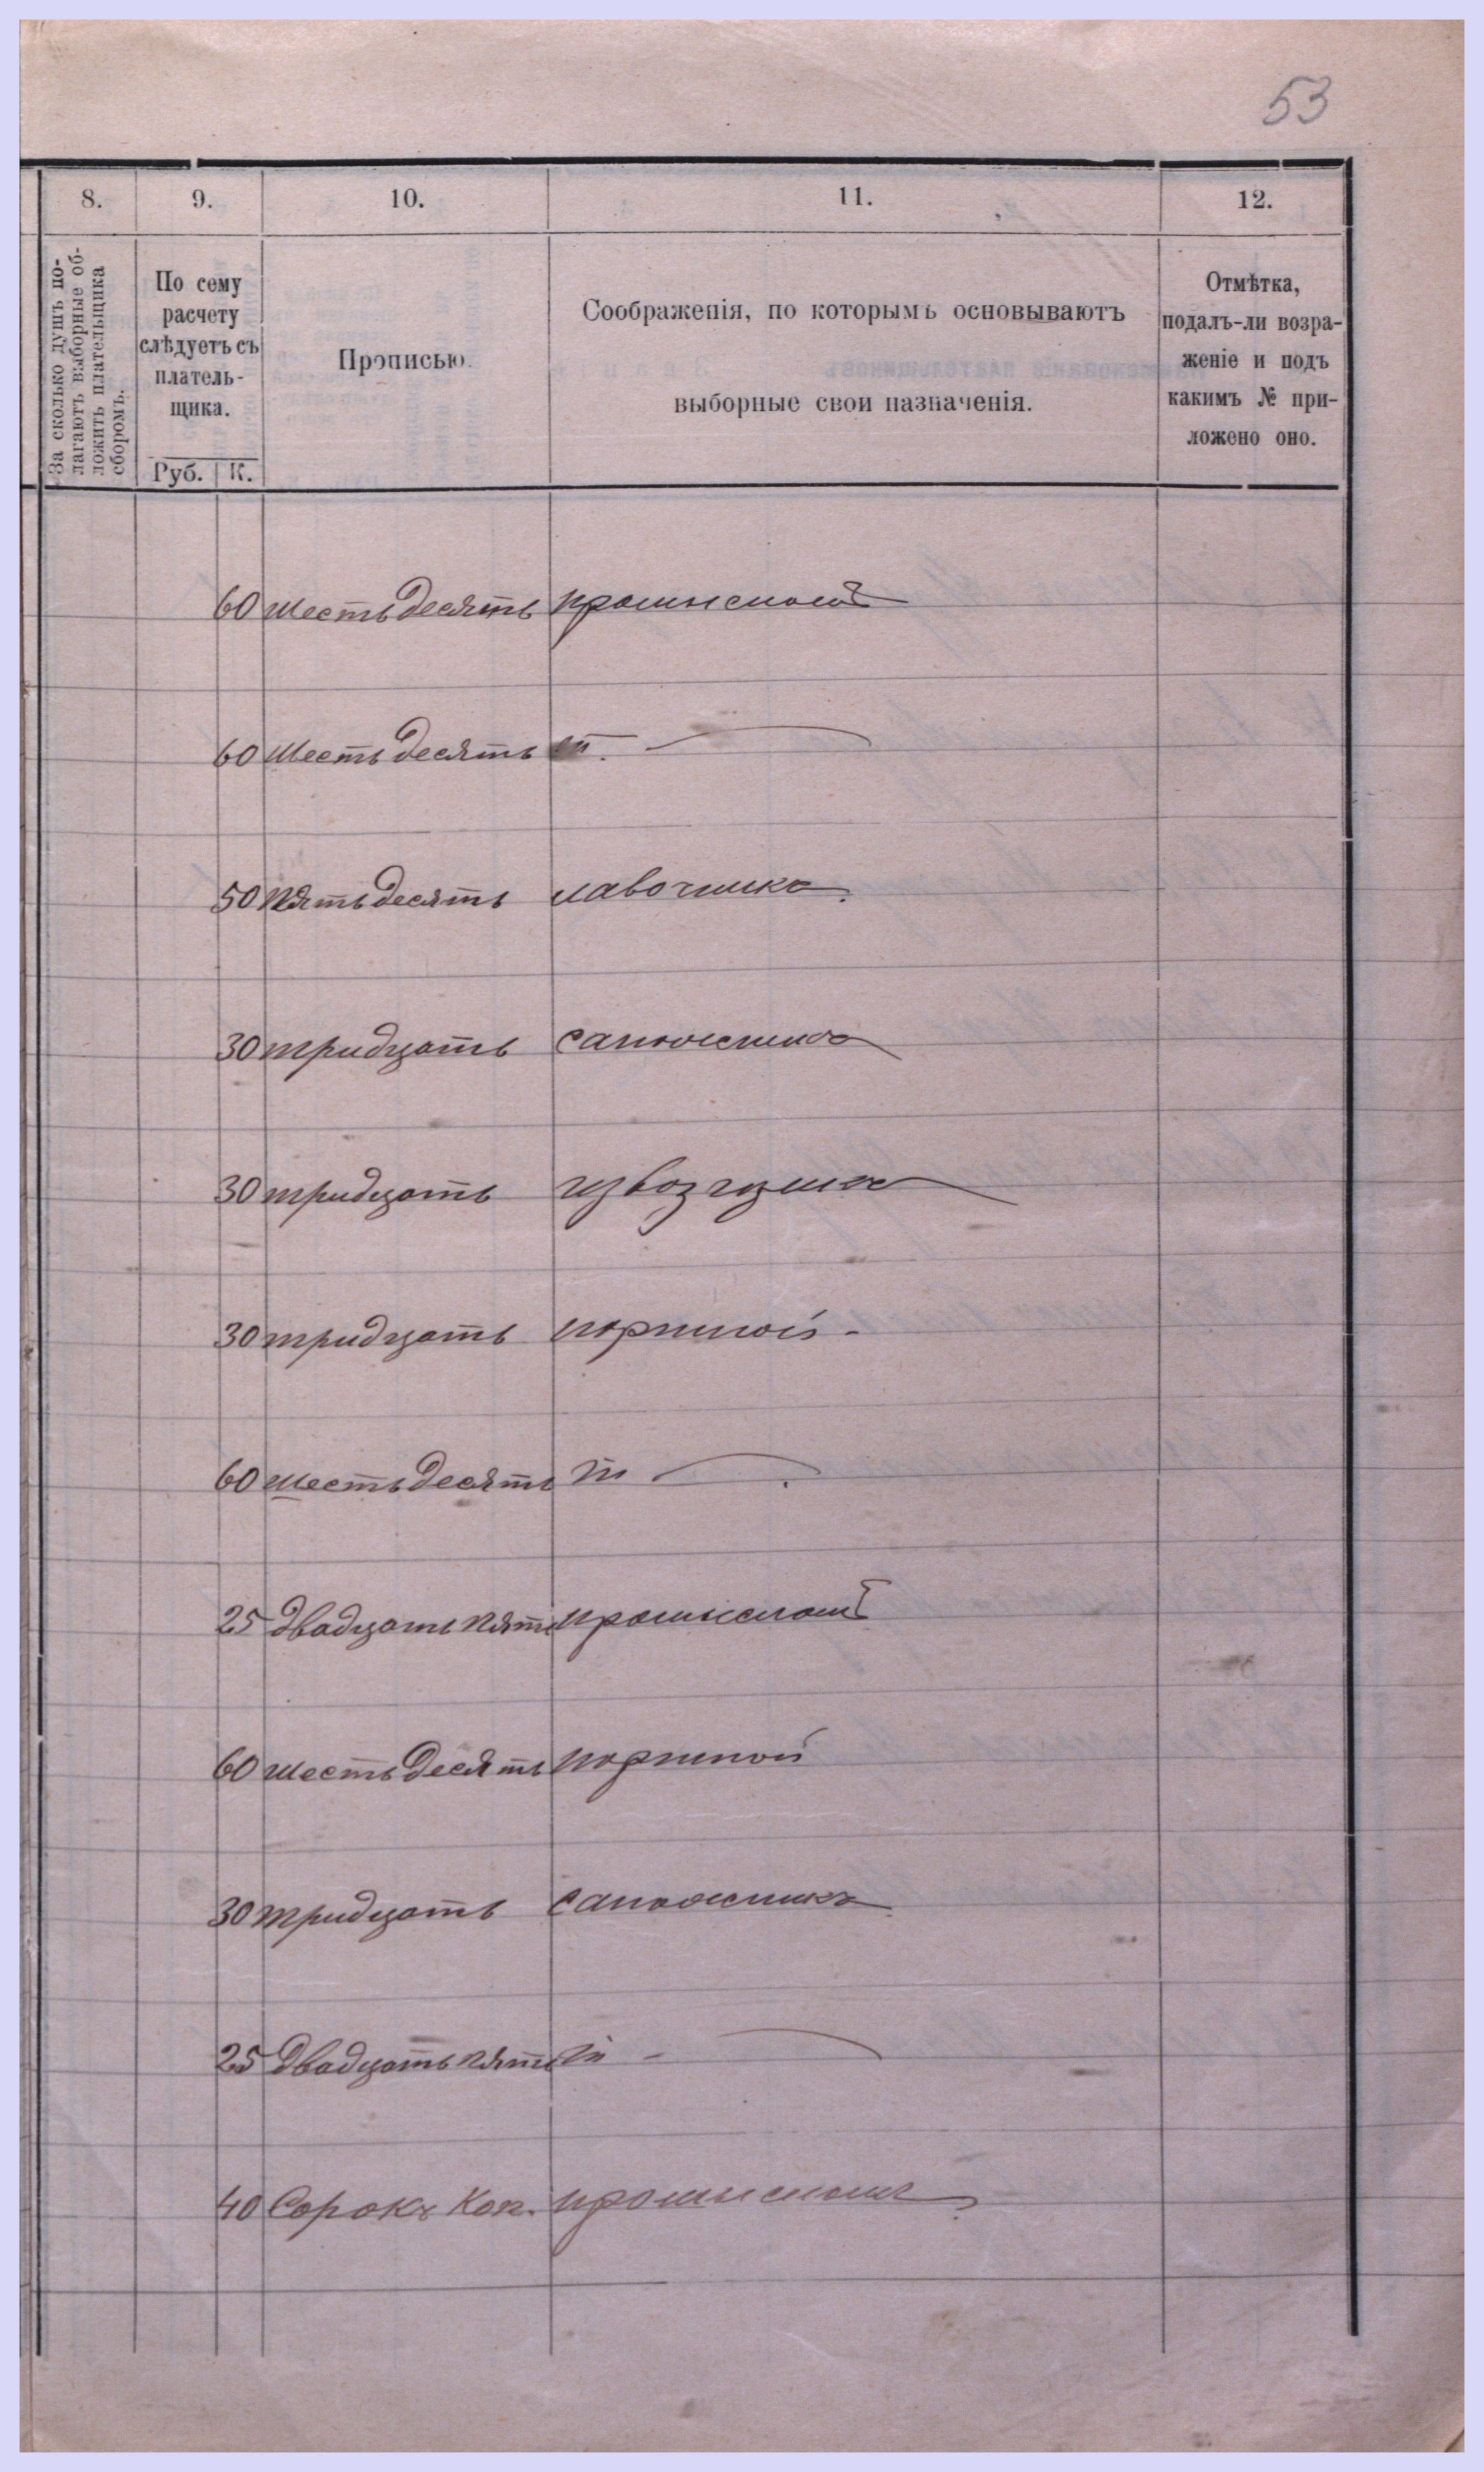 53
8. 9. 10. 11. 12.
За сколько душъ по-
лагаютъ выборные об-
ложить плательщика
сборомъ.
По сему
расчету
слѣдуетъ съ
платель-
щика.
Руб. К.
Прописью.
Соображенія, по которымъ основываютъ
выборные свои назначенія.
Отмѣтка,
подалъ-ли возра-
женіе и подъ
какимъ № при-
ложено оно.
60 шестьдесятъ промысломъ
60 шестьдесятъ
50 пятьдесятъ лавочника.
30 тридцать сапожника
30 тридцать извозчика
30 тридцать портной -
60 шестьдесятъ
25 двадцать пять промысломъ
60 шестьдесятъ портной
30 тридцать сапожникъ
25 двадцать пять
40 Сорокъ Коп. промысломъ